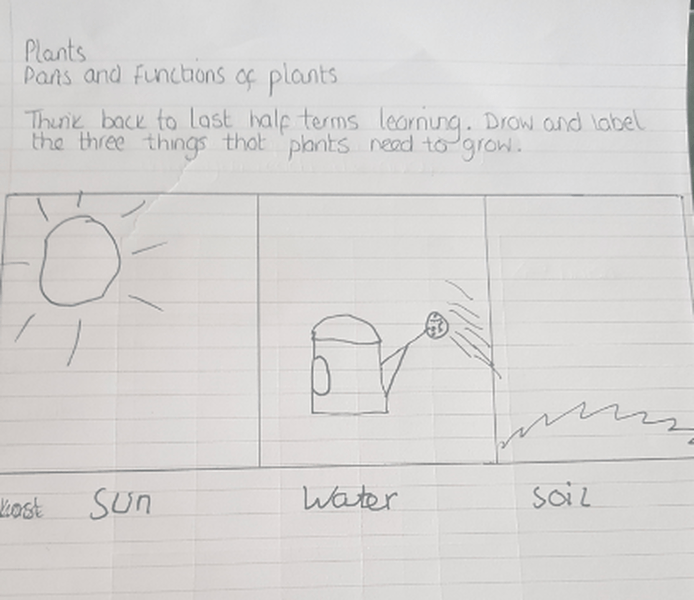 Plants
Parts and functions of plants
Think back to last half terms learning. Draw and label
the three things that plants need to grow.
Sun
Water
Soil